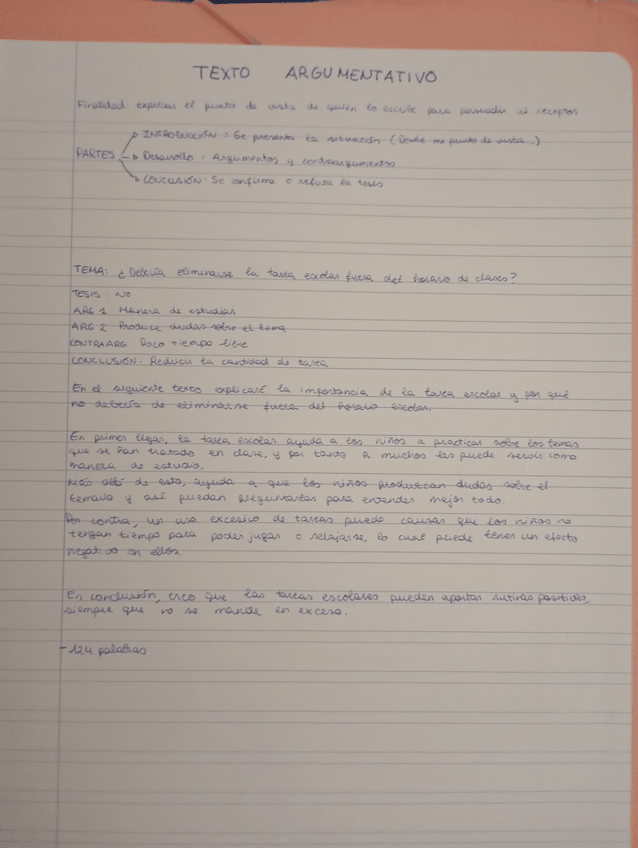 TEXTO ARGUMENTATIVO
Finalidad expresar el punto de vista de quien lo escribe para persuadir al receptor
INTRODUCCIÓN: Se presenta la situación (Desde mi punto de vista..)
PARTES Desarrollo: Argumentos y contraargumentos
CONCLUSIÓN: Se confirma o refuta la tesis
TEMA: ¿Debería eliminarse la tarea escolar fuera del horario de clases?
TESIS: NO
ARG 1 Manera de estudiar
ARG 2 Produce dudas sobre el tema
CONTRAARG Poco tiempo libre
CONCLUSIÓN: Reducir la cantidad de tarea
En el siguiente texto explicaré la importancia de la tarea escolar y por qué
no debería de eliminarse fuera del horario escolar.
En primer lugar, la tarea escolar ayuda a los niños a practicar sobre los temas
que se han tratado en clase, y por tanto a muchos les puede servir como
manera de estudio.
Más allá de esto, ayuda a que los niños produzcan dudas sobre el
temario y así puedan preguntarlas para entender mejor todo.
Por contra, un uso excesivo de tareas puede causar que los niños no
tengan tiempo para poder jugar o relajarse, lo cual puede tener un efecto
negativo en ellos.
En conclusión, creo que las tareas escolares pueden aportar rutinas positivas,
siempre que no se mande en exceso.
-124 palabras